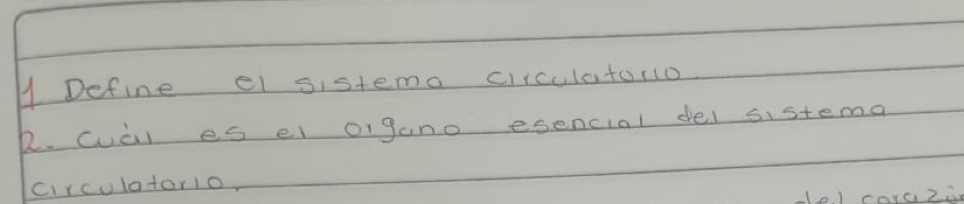 1 Define el sistema circulatorio.
2. Cuál es el organo esencial del sistema
circulatorio.
del corazón